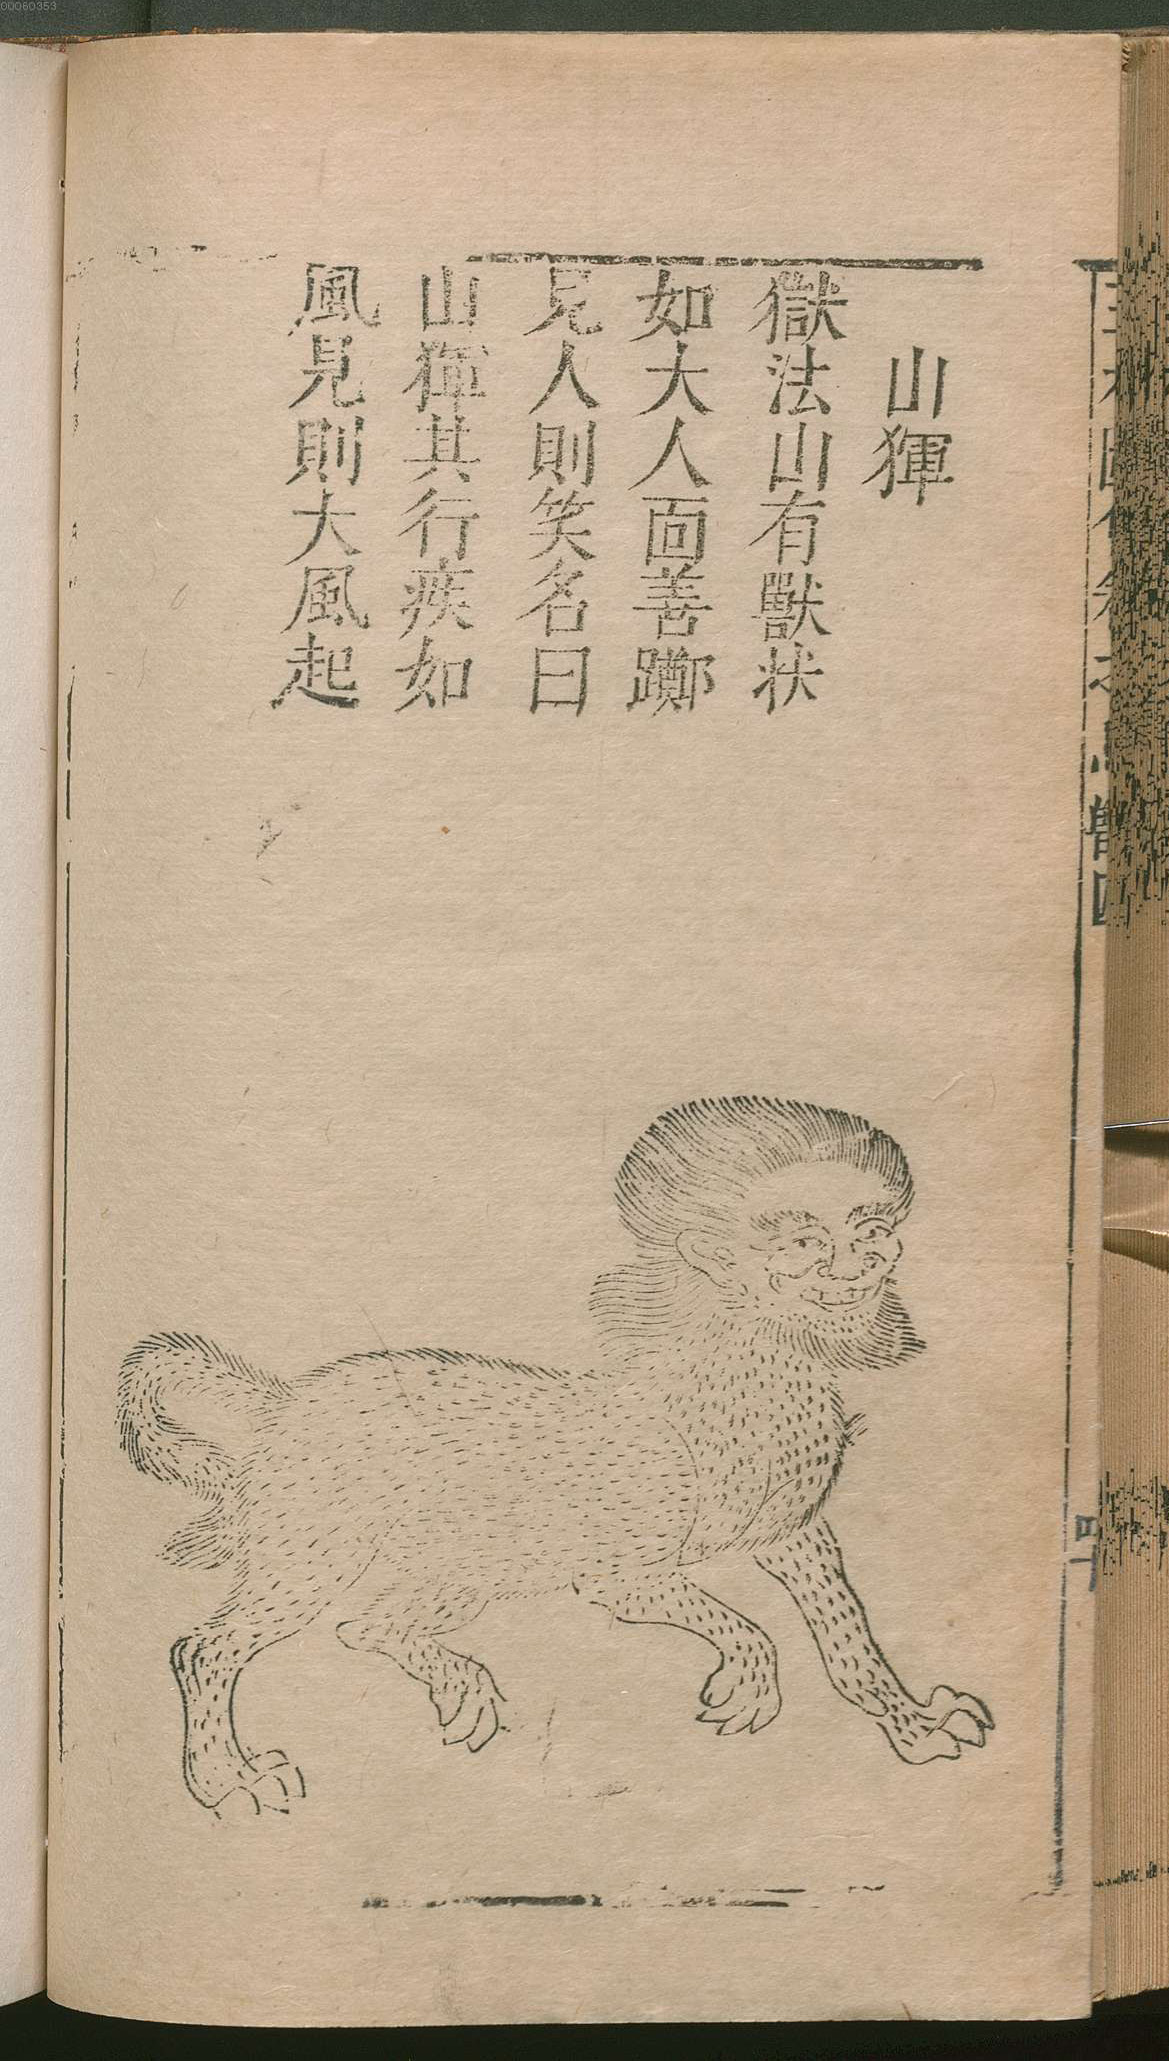 山𤟤
獄法山有獸狀
如犬人面善躑
見人則笑名曰
山𤟤其行疾如
風見則大風起
00060353